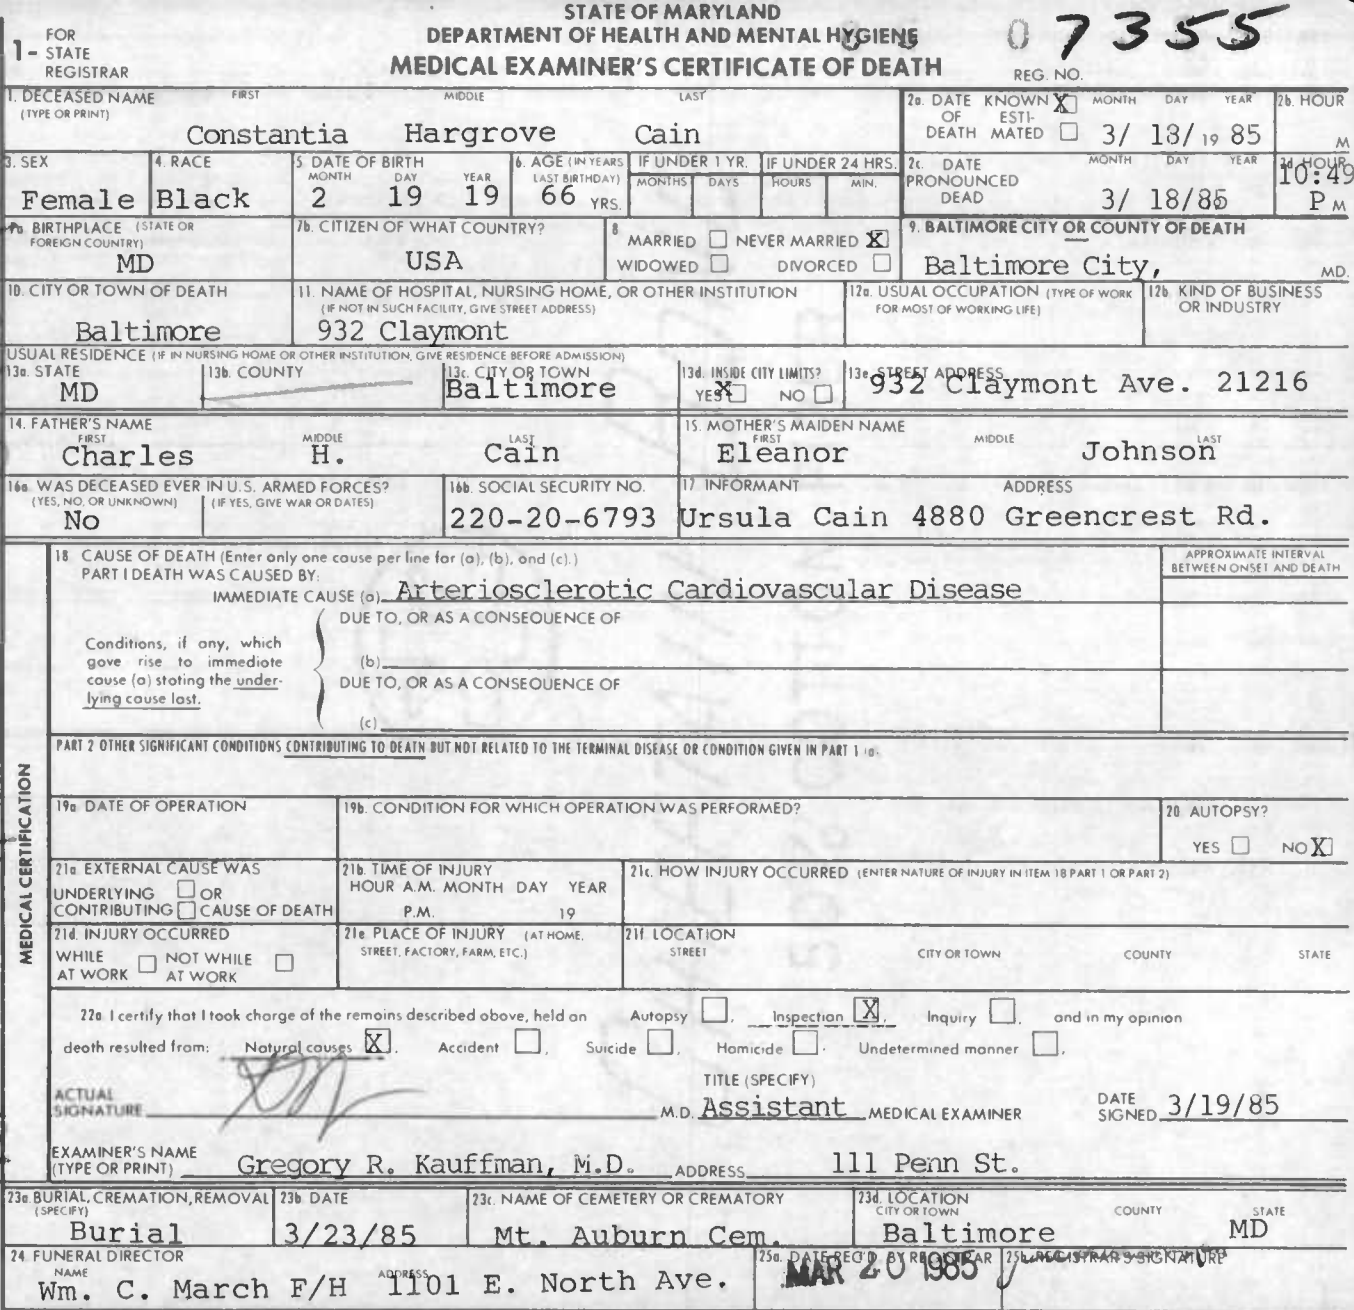 STATE OF MARYLAND
DEPARTMENT OF HEALTH AND MENTAL HYGIENE
MEDICAL EXAMINER'S CERTIFICATE OF DEATH
1- FOR STATE REGISTRAR
REG. NO. 07355
1. DECEASED NAME (TYPE OR PRINT) FIRST MIDDLE LAST
Constantia Hargrove Cain
2a. DATE OF DEATH KNOWN X ESTIMATED MONTH DAY YEAR
3/ 18/ 19 85
2b. HOUR M
3. SEX
Female
4. RACE
Black
5. DATE OF BIRTH MONTH DAY YEAR
2 19 19
6. AGE (IN YEARS LAST BIRTHDAY)
66 YRS.
IF UNDER 1 YR. MONTHS DAYS
IF UNDER 24 HRS. HOURS MIN.
2c. DATE PRONOUNCED DEAD MONTH DAY YEAR
3/ 18/85
2d HOUR
10:49 P M
7a. BIRTHPLACE (STATE OR FOREIGN COUNTRY)
MD
7b. CITIZEN OF WHAT COUNTRY?
USA
8 MARRIED NEVER MARRIED X
WIDOWED DIVORCED
9. BALTIMORE CITY OR COUNTY OF DEATH
Baltimore City, MD.
10. CITY OR TOWN OF DEATH
Baltimore
11. NAME OF HOSPITAL, NURSING HOME, OR OTHER INSTITUTION
(IF NOT IN SUCH FACILITY, GIVE STREET ADDRESS)
932 Claymont
12a. USUAL OCCUPATION (TYPE OF WORK FOR MOST OF WORKING LIFE)
12b. KIND OF BUSINESS OR INDUSTRY
USUAL RESIDENCE (IF IN NURSING HOME OR OTHER INSTITUTION, GIVE RESIDENCE BEFORE ADMISSION)
13a. STATE
MD
13b. COUNTY
13c. CITY OR TOWN
Baltimore
13d. INSIDE CITY LIMITS?
YES X NO
13e. STREET ADDRESS
932 Claymont Ave. 21216
14. FATHER'S NAME FIRST MIDDLE LAST
Charles H. Cain
15. MOTHER'S MAIDEN NAME FIRST MIDDLE LAST
Eleanor Johnson
16a WAS DECEASED EVER IN U.S. ARMED FORCES?
(YES, NO, OR UNKNOWN) (IF YES, GIVE WAR OR DATES)
No
16b. SOCIAL SECURITY NO.
220-20-6793
17 INFORMANT ADDRESS
Ursula Cain 4880 Greencrest Rd.
MEDICAL CERTIFICATION
18 CAUSE OF DEATH (Enter only one cause per line for (a), (b), and (c).)
PART I DEATH WAS CAUSED BY:
IMMEDIATE CAUSE (a) Arteriosclerotic Cardiovascular Disease
APPROXIMATE INTERVAL BETWEEN ONSET AND DEATH
Conditions, if any, which gave rise to immediate cause (a) stating the underlying cause last.
DUE TO, OR AS A CONSEQUENCE OF
(b)
DUE TO, OR AS A CONSEQUENCE OF
(c)
PART 2 OTHER SIGNIFICANT CONDITIONS CONTRIBUTING TO DEATH BUT NOT RELATED TO THE TERMINAL DISEASE OR CONDITION GIVEN IN PART 1 (a).
19a DATE OF OPERATION
19b. CONDITION FOR WHICH OPERATION WAS PERFORMED?
20 AUTOPSY?
YES NO X
21a EXTERNAL CAUSE WAS
UNDERLYING OR
CONTRIBUTING CAUSE OF DEATH
21b. TIME OF INJURY
HOUR A.M. MONTH DAY YEAR
P.M. 19
21c. HOW INJURY OCCURRED (ENTER NATURE OF INJURY IN ITEM 18 PART 1 OR PART 2)
21d. INJURY OCCURRED
WHILE AT WORK NOT WHILE AT WORK
21e PLACE OF INJURY (AT HOME, STREET, FACTORY, FARM, ETC.)
21f. LOCATION
STREET CITY OR TOWN COUNTY STATE
22a I certify that I took charge of the remains described above, held an Autopsy , Inspection X , Inquiry , and in my opinion
death resulted from: Natural causes X , Accident , Suicide , Homicide . Undetermined manner ,
ACTUAL SIGNATURE M.D.
TITLE (SPECIFY)
Assistant MEDICAL EXAMINER
DATE SIGNED 3/19/85
EXAMINER'S NAME (TYPE OR PRINT) Gregory R. Kauffman, M.D. ADDRESS 111 Penn St.
23a. BURIAL, CREMATION, REMOVAL (SPECIFY)
Burial
23b. DATE
3/23/85
23c. NAME OF CEMETERY OR CREMATORY
Mt. Auburn Cem.
23d. LOCATION CITY OR TOWN COUNTY STATE
Baltimore MD
24 FUNERAL DIRECTOR
NAME ADDRESS
Wm. C. March F/H 1101 E. North Ave.
25a. DATE REC'D. BY REGISTRAR
MAR 20 1985
25b. REGISTRAR'S SIGNATURE